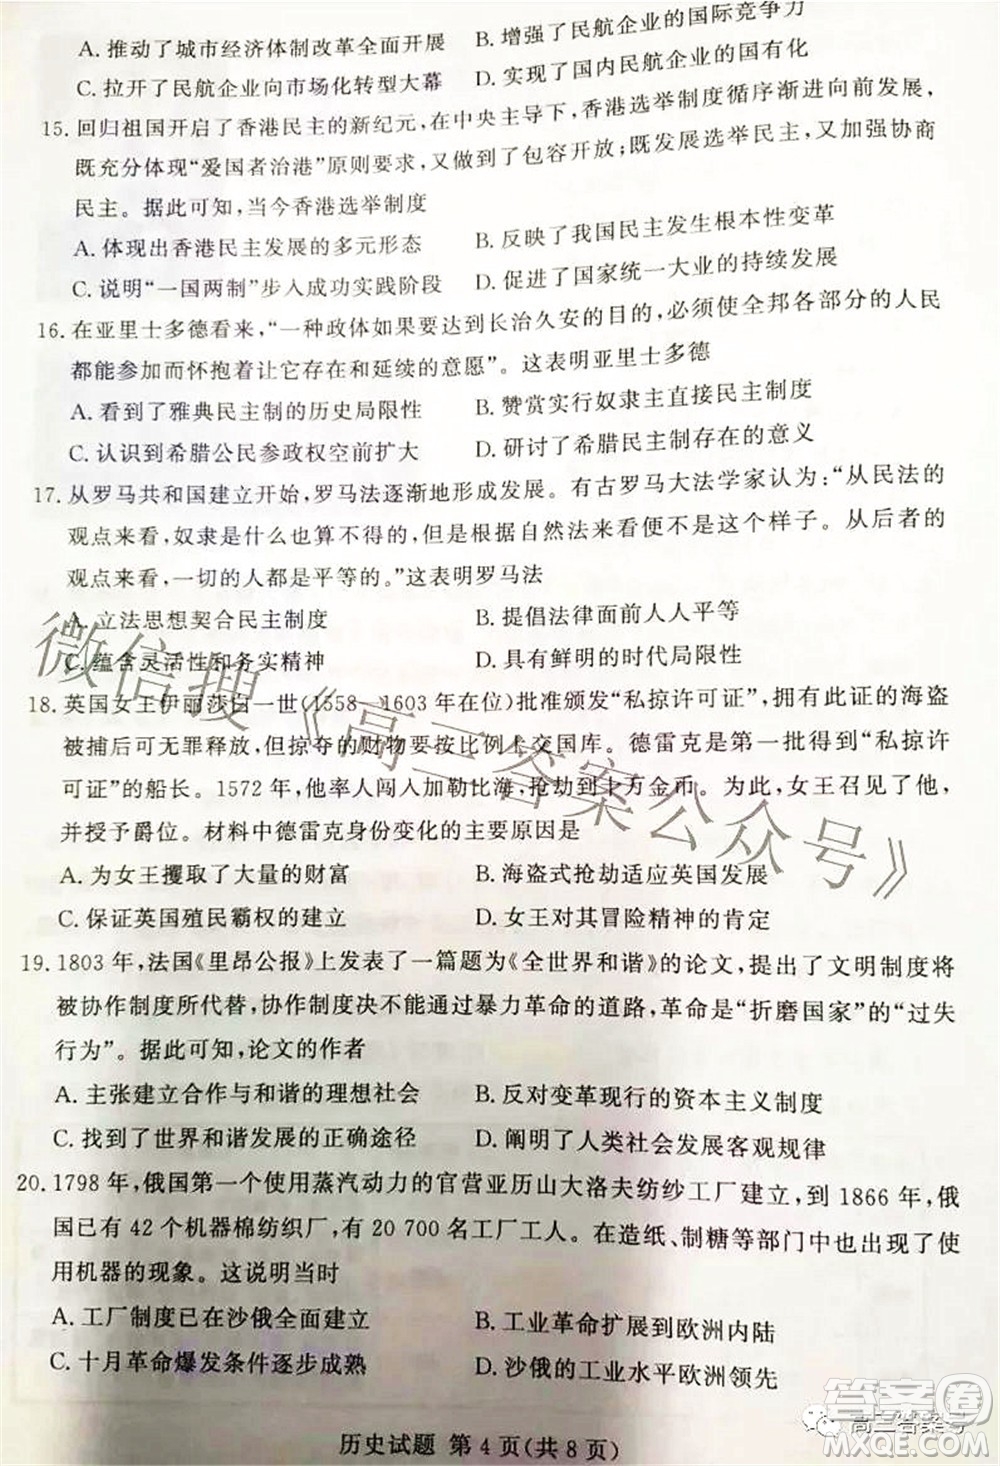 A. 推动了城市经济体制改革全面开展 B. 增强了民航企业的国际竞争力
C. 拉开了民航企业向市场化转型大幕 D. 实现了国内民航企业的国有化
15. 回归祖国开启了香港民主的新纪元，在中央主导下，香港选举制度循序渐进向前发展，
既充分体现“爱国者治港”原则要求，又做到了包容开放；既发展选举民主，又加强协商
民主。据此可知，当今香港选举制度
A. 体现出香港民主发展的多元形态 B. 反映了我国民主发生根本性变革
C. 说明“一国两制”步入成功实践阶段 D. 促进了国家统一大业的持续发展
16. 在亚里士多德看来，“一种政体如果要达到长治久安的目的，必须使全邦各部分的人民
都能参加而怀抱着让它存在和延续的意愿”。这表明亚里士多德
A. 看到了雅典民主制的历史局限性 B. 赞赏实行奴隶主直接民主制
C. 认识到希腊公民参政权空前扩大 D. 研讨了希腊民主制存在的意义
17. 从罗马共和国建立开始，罗马法逐渐地形成发展。有古罗马大法学家认为：“从民法的
观点来看，奴隶是什么也算不上的。但是根据自然法来看便不是这个样子。从后者的
观点来看，一切的人都是平等的。”这表明罗马法
A. 立法思想契合民主制度 B. 提倡法律面前人人平等
C. 蕴含灵活性和务实精神 D. 具有鲜明的时代局限性
18. 英国女王伊丽莎白一世(1558—1603年在位)批准颁发“私掠许可证”，拥有此证的海盗
被捕后可无罪释放，但掠夺的财物要按比例上交国库。德雷克是第一批得到“私掠许
可证”的船长。1572年，他率人闯入加勒比海，抢劫到上万金币。女王召见了他，
并授予爵位。材料中德雷克身份变化的主要原因是
A. 为女王攫取了大量的财富 B. 海盗式抢劫适应英国发展
C. 保证英国殖民霸权的建立 D. 女王对其冒险精神的肯定
19. 1803年，法国《里昂公报》上发表了一篇题为《全世界和谐》的论文，提出了文明制度将
被协作制度所代替，协作制度决不能通过暴力革命的道路，革命是“折磨国家”的“过失
行为”。据此可知，论文的作者
A. 主张建立合作与和谐的理想社会 B. 反对变革现行的资本主义制度
C. 找到了世界和谐发展的正确途径 D. 阐明了人类社会发展客观规律
20. 1798年，俄国第一个使用蒸汽动力的官营亚历山大洛夫纺纱工厂建立，到1866年，俄
国已有42个机器棉纺织厂，有20 700名工厂工人。在造纸、制糖等部门中也出现了使
用机器的现象。这说明当时
A. 工厂制度已在沙俄全面建立 B. 工业革命扩展到欧洲内陆
C. 十月革命爆发条件逐步成熟 D. 沙俄的工业水平欧洲领先
历史试题 第4页(共8页)
微信搜《高三答案公众号》
高三答案号
答案圈
MXQE.COM